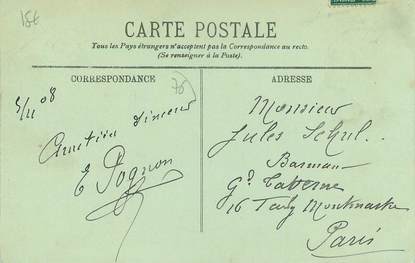 15€
CARTE POSTALE
Tous les Pays étrangers n'acceptent pas la Correspondance au recto.
(Se renseigner à la Poste).
CORRESPONDANCE
75
5/11 08
sincères
E Pognon
ADRESSE
Monsieur
Jules Schul..
Barman
Gde Taverne
16 Faubg Montmartre
Paris